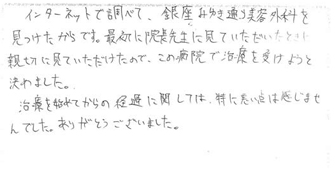 インターネットで調べて、銀座みゆき通り美容外科を
見つけたからです。最初に院長先生に見ていただいたときに
親切に見ていただけたので、この病院で治療を受けようと
決めました。
治療を始めてからの経過に関しては、特に悪い点は感じませ
んでした。ありがとうございました。